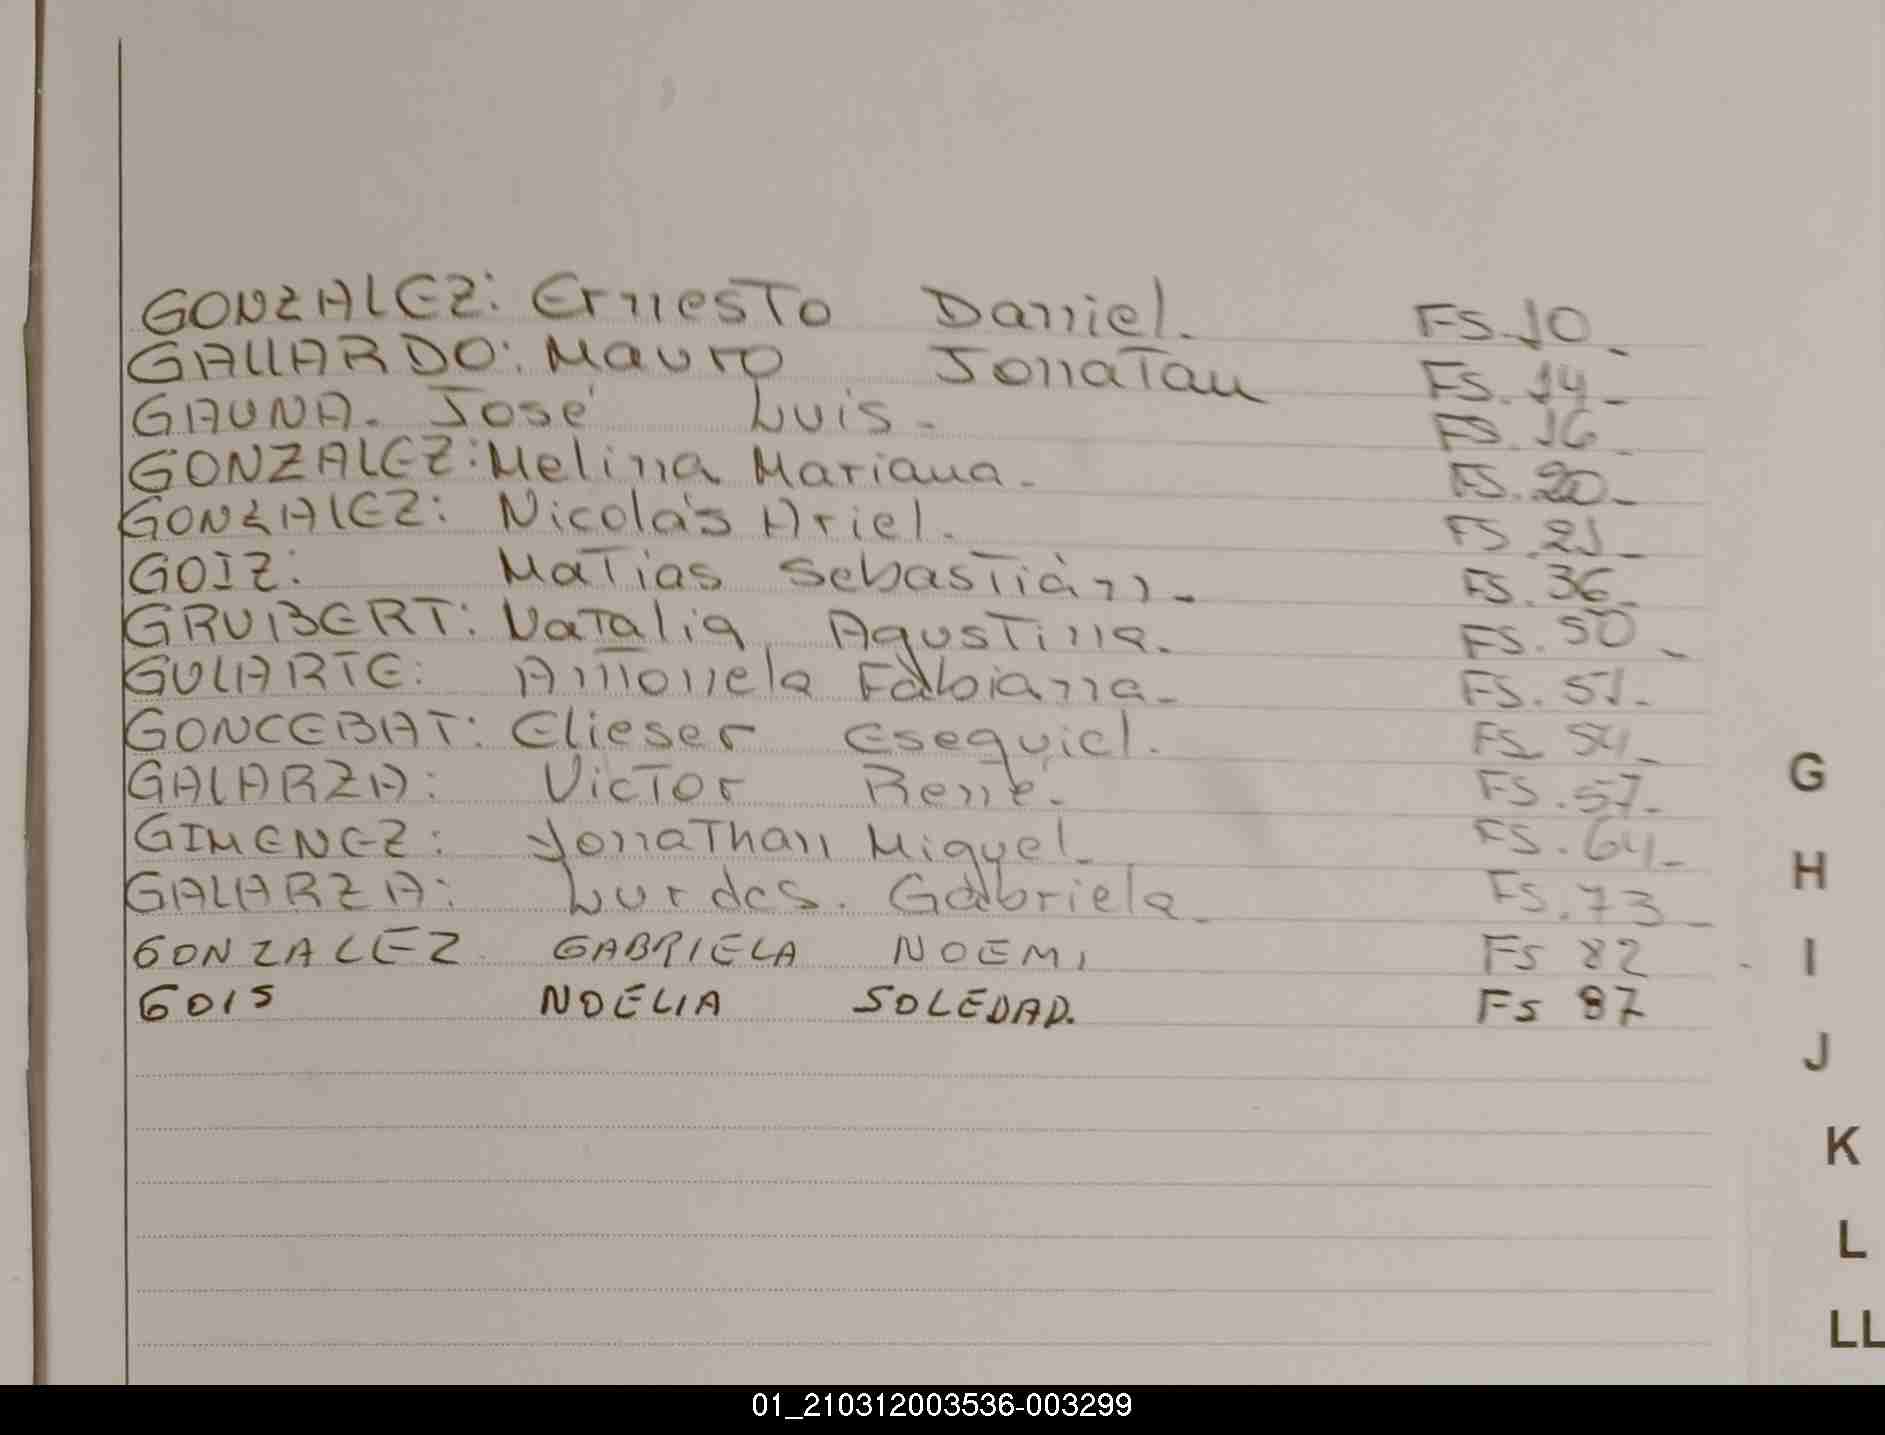 GONZALEZ: Ernesto Daniel. FS.10_
GALLARDO: Mauro Jonatan FS.14_
GAUNA. José Luis. FS.16_
GONZALEZ: Melina Mariana. FS.20_
GONZALEZ: Nicolás Ariel. FS.21_
GOIZ: Matias Sebastián_ FS.36_
GRUBERT: Natalia Agustina. FS.50_
GULARTE: Antonela Fabiana_ FS.51_
GONCEBAT: Elieser Esequiel. FS.54_
GALARZA: Victor René. FS.57_
GIMENEZ: Jonathan Miguel_ FS.64_
GALARZA: Lurdes. Gabriela_ FS.73_
GONZALEZ GABRIELA NOEMI FS 82
GOIS NOELIA SOLEDAD. FS 87
G
H
I
J
K
L
LL
01_210312003536-003299